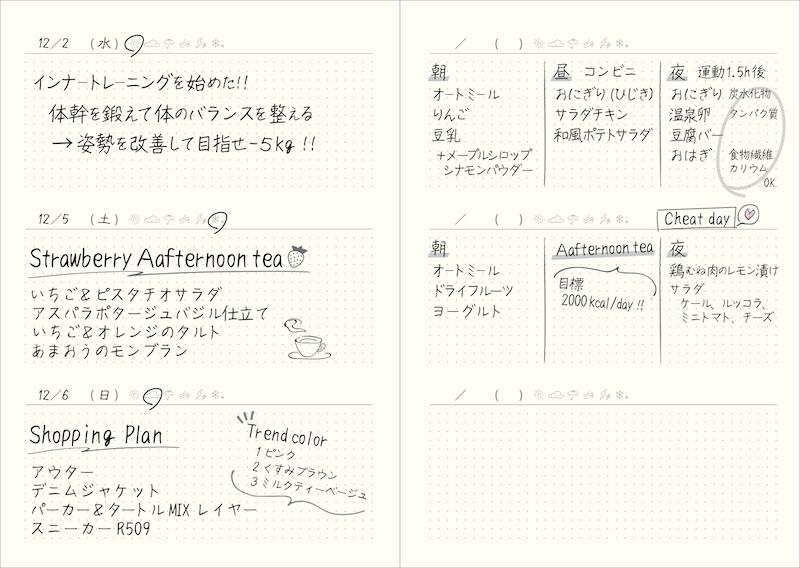 12/2 (水)
インナートレーニングを始めた!!
体幹を鍛えて体のバランスを整える
→姿勢を改善して目指せ-5kg !!
12/5 (土)
Strawberry Aafternoon tea
いちご&ピスタチオサラダ
アスパラポタージュバジル仕立て
いちご&オレンジのタルト
あまおうのモンブラン
12/6 (日)
Shopping Plan
アウター
デニムジャケット
パーカー&タートルMIXレイヤー
スニーカーR509
Trend color
1 ピンク
2 くすみブラウン
3 ミルクティーベージュ
/ ( )
朝
オートミール
りんご
豆乳
+メープルシロップ
シナモンパウダー
昼 コンビニ
おにぎり(ひじき)
サラダチキン
和風ポテトサラダ
夜 運動1.5h後
おにぎり 炭水化物
温泉卵 タンパク質
豆腐バー
おはぎ 食物繊維
カリウム
OK
/ ( )
Cheat day
朝
オートミール
ドライフルーツ
ヨーグルト
Aafternoon tea
目標
2000kcal/day !!
夜
鶏むね肉のレモン漬け
サラダ
ケール、ルッコラ、
ミニトマト、チーズ
/ ( )